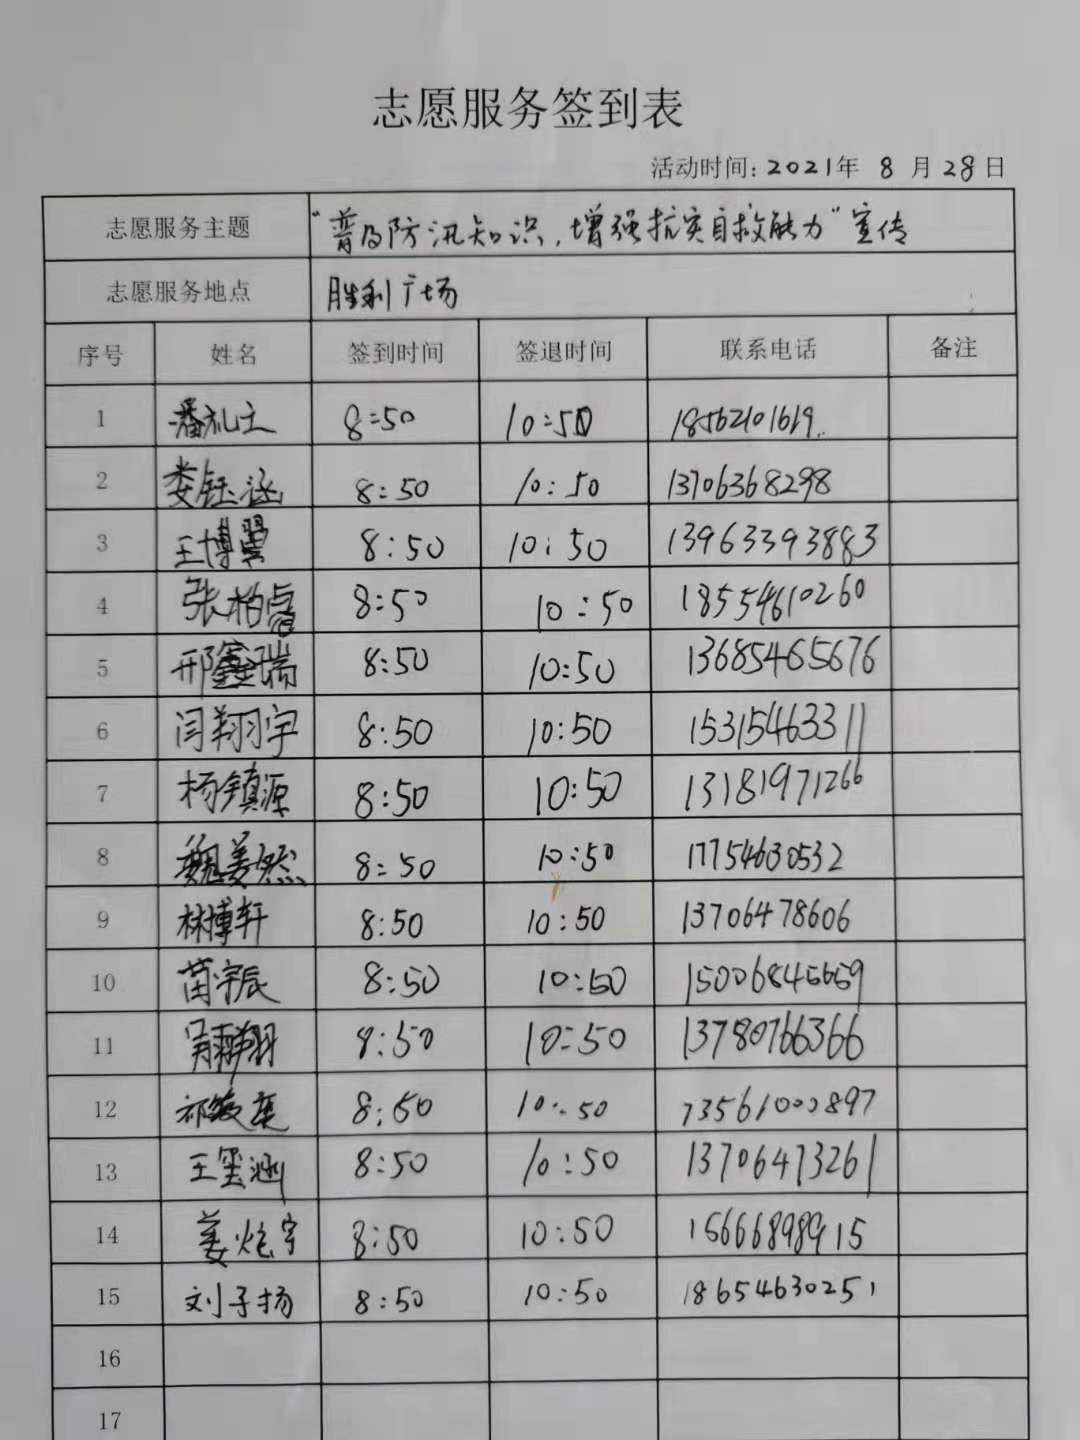 志愿服务签到表
活动时间：2021年 8 月 28 日
志愿服务主题 "普及防汛知识，增强抗灾自救能力"宣传
志愿服务地点 胜利广场
序号 姓名 签到时间 签退时间 联系电话 备注
1 潘礼士 8:50 10:50 18562101619
2 娄钰涵 8:50 10:50 13706368298
3 王博翼 8:50 10:50 13963393883
4 张柏睿 8:50 10:50 18554610260
5 邢鑫瑞 8:50 10:50 13685465676
6 闫翔宇 8:50 10:50 15315463311
7 杨镇源 8:50 10:50 13181971266
8 魏姜然 8:50 10:50 17754630532
9 林博轩 8:50 10:50 13706478606
10 苗宇辰 8:50 10:50
11 吴雨翔 8:50 10:50 13780766366
12 8:50 10:50
13 王玺涵 8:50 10:50 13706473261
14 姜炮宇 8:50 10:50 15666898915
15 刘子扬 8:50 10:50 18654630251
16
17